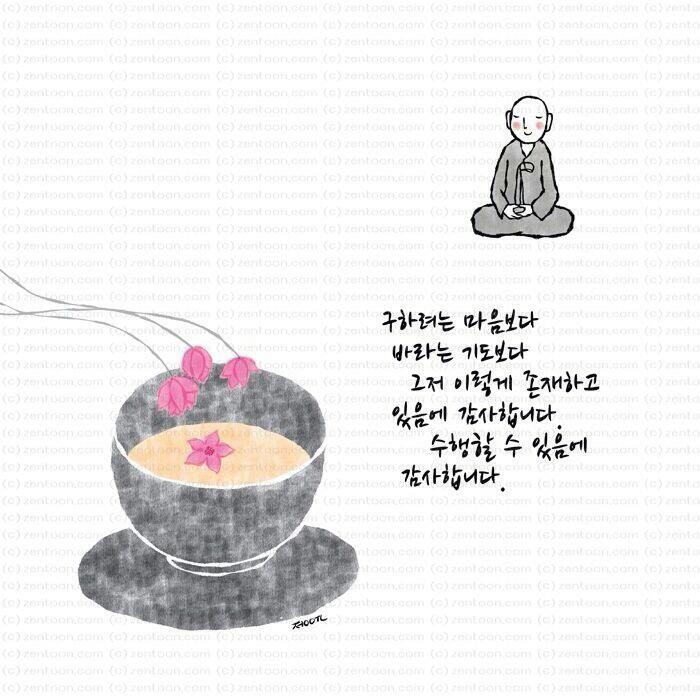 구하려는 마음보다
바라는 기도보다
그저 이렇게 존재하고
있음에 감사합니다.
수행할 수 있음에
감사합니다.
(c)zentoon.com